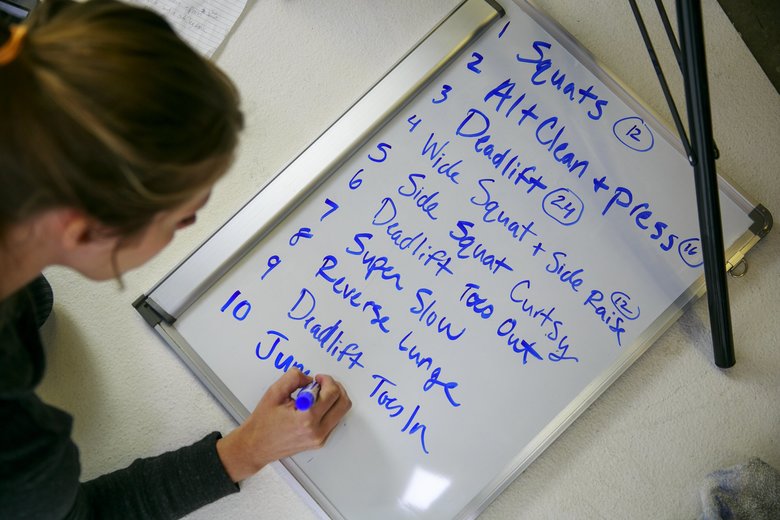 1 Squats 12
2 Alt Clean + Press 16
3 Deadlift 24
4 Wide Squat + Side Raise 12
5 Side Squat Curtsy
6 Deadlift Toes Out
7 Super Slow
8 Reverse Lunge
9 Deadlift Toes In
10